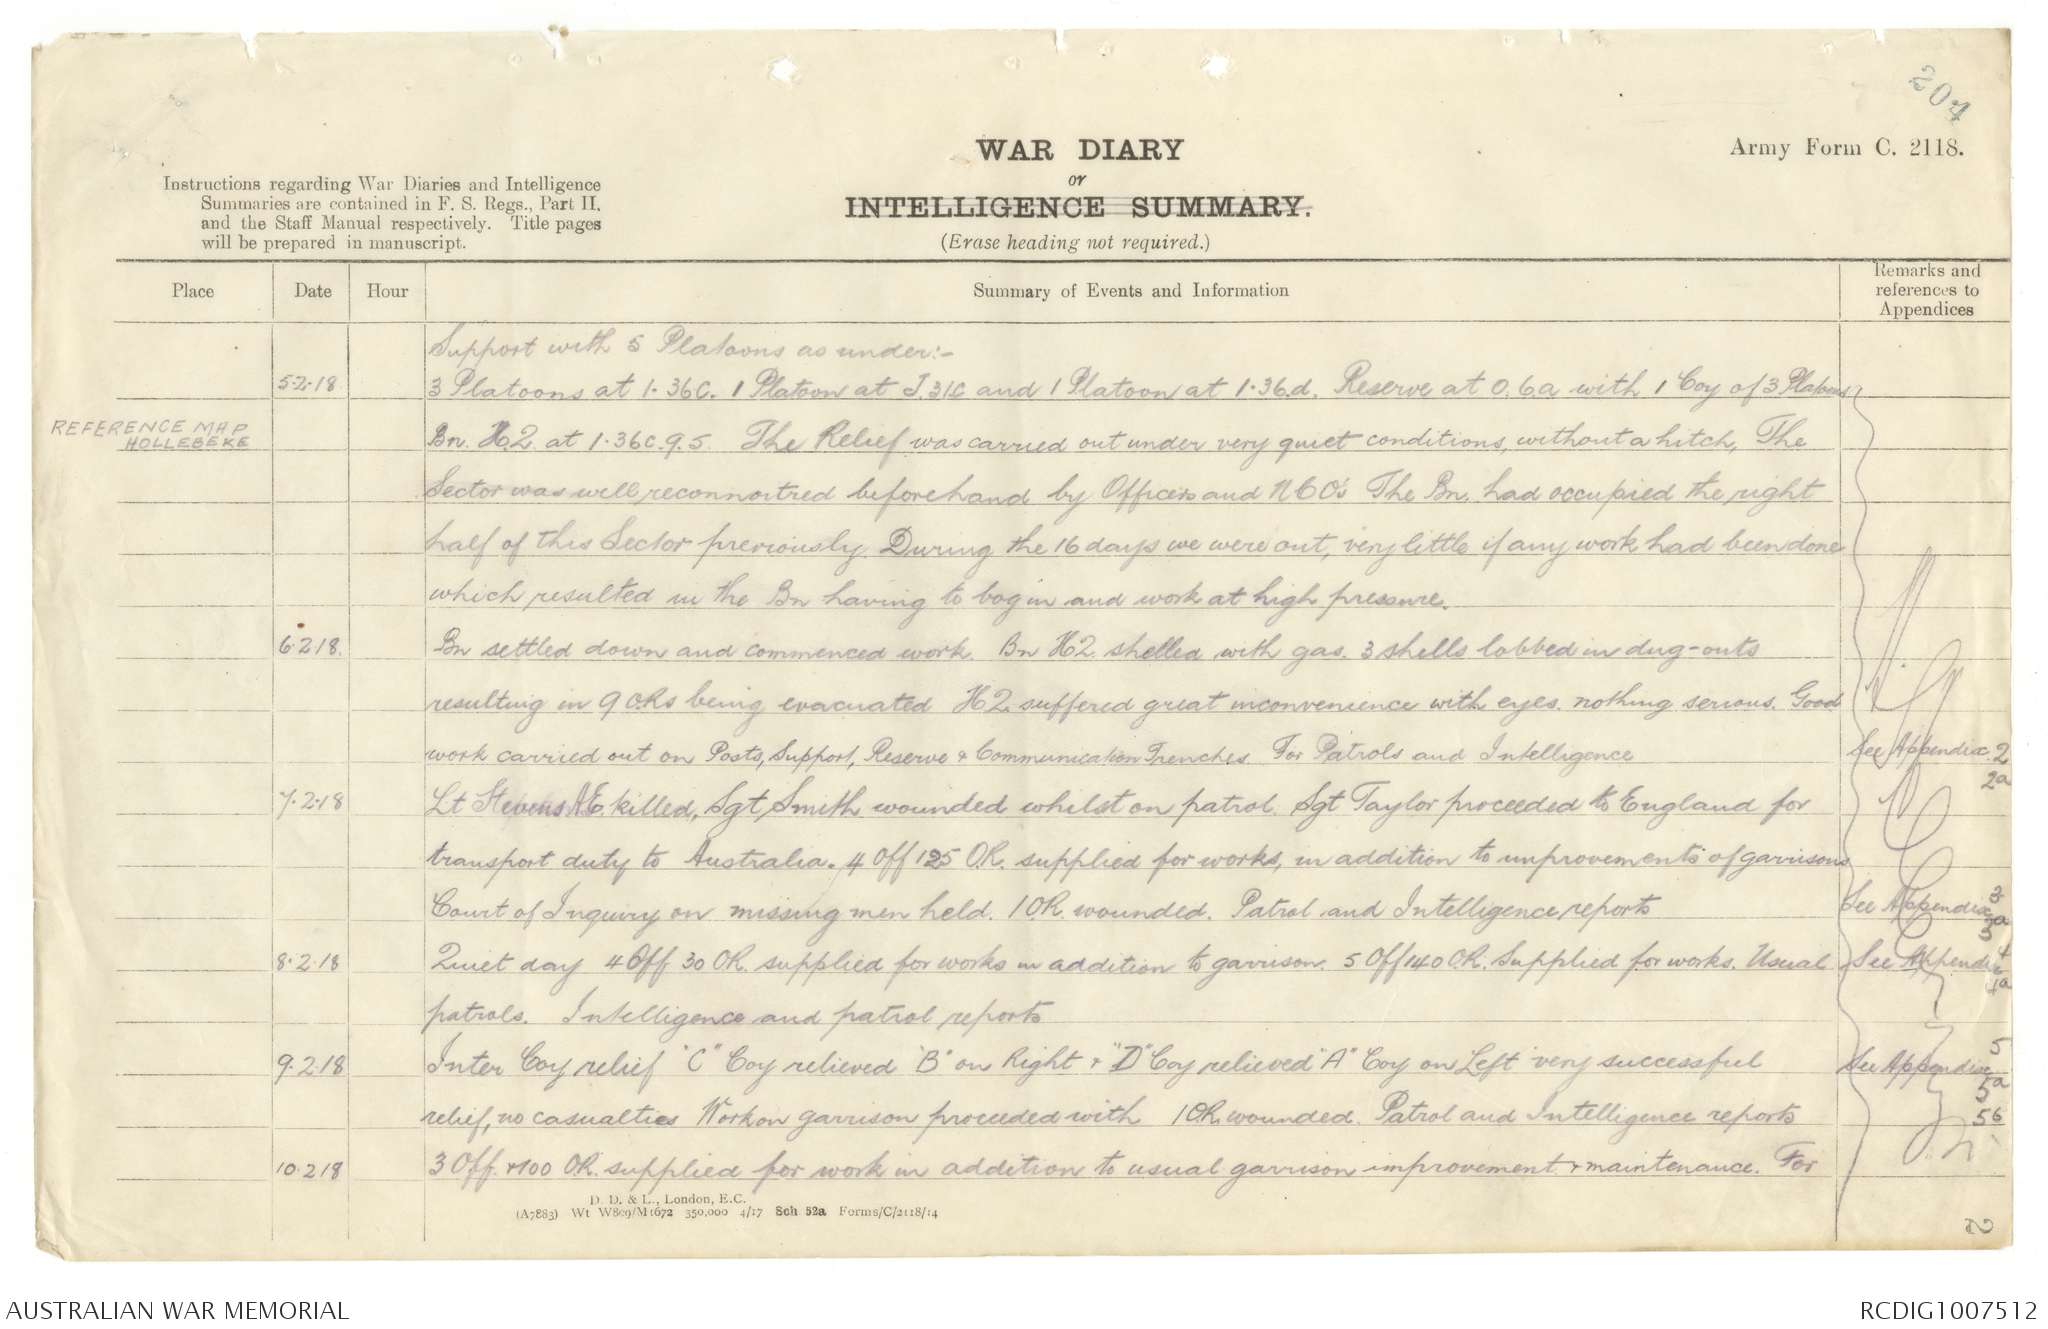 204
WAR DIARY
or
INTELLIGENCE SUMMARY.
(Erase heading not required.)
Army Form C. 2118.
Instructions regarding War Diaries and Intelligence
Summaries are contained in F. S. Regs., Part II.
and the Staff Manual respectively. Title pages
will be prepared in manuscript.
Place Date Hour Summary of Events and Information Remarks and references to Appendices
Support with 5 Platoons as under:-
5.2.18 3 Platoons at 1.36c. 1 Platoon at J.31c and 1 Platoon at 1.36.d. Reserve at O.6.a with 1 Coy of 3 Platoons
REFERENCE MAP
HOLLEBEKE
Bn. H.Q. at 1.36c.9.5. The Relief was carried out under very quiet conditions, without a hitch, The
Sector was well reconnoitred beforehand by Officers and NCO's The Bn. had occupied the right
half of this Sector previously. During the 16 days we were out, very little if any work had been done
which resulted in the Bn having to bogin and work at high pressure.
6.2.18. Bn settled down and commenced work. Bn HQ. shelled with gas. 3 shells lobbed in dug-outs
resulting in 9 ORs being evacuated HQ suffered great inconvenience with eyes. nothing serious. Good
work carried out on Posts, Support, Reserve & Communication Trenches. For Patrols and Intelligence See Appendix 2
2a
7.2.18 Lt Stevens A.E. killed, Sgt Smith wounded whilst on patrol. Sgt Taylor proceeded to England for
transport duty to Australia. 4 Off 125 O.R. supplied for works, in addition to improvements of garrisons
Court of Inquiry on missing men held. 1 OR. wounded. Patrol and Intelligence reports See Appendix 3
3a
8.2.18 Quiet day 4 Off 30 OR. supplied for works in addition to garrison. 5 Off 140 OR. Supplied for works. Usual See Appendix 4
4a
patrols. Intelligence and patrol reports
9.2.18 Inter Coy relief "C" Coy relieved "B" on Right & "D" Coy relieved "A" Coy on Left very successful See Appendix 5
5a
relief, no casualties Work on garrison proceeded with 1 OR wounded. Patrol and Intelligence reports 5b
10.2.18 3 Off. & 100 OR. supplied for work in addition to usual garrison improvement & maintenance. For
D. D. & L., London, E.C.
(A7883) Wt W809/M1672 350,000 4/17 Sch 52a Forms/C/2118/14
2
AUSTRALIAN WAR MEMORIAL
RCDIG1007512